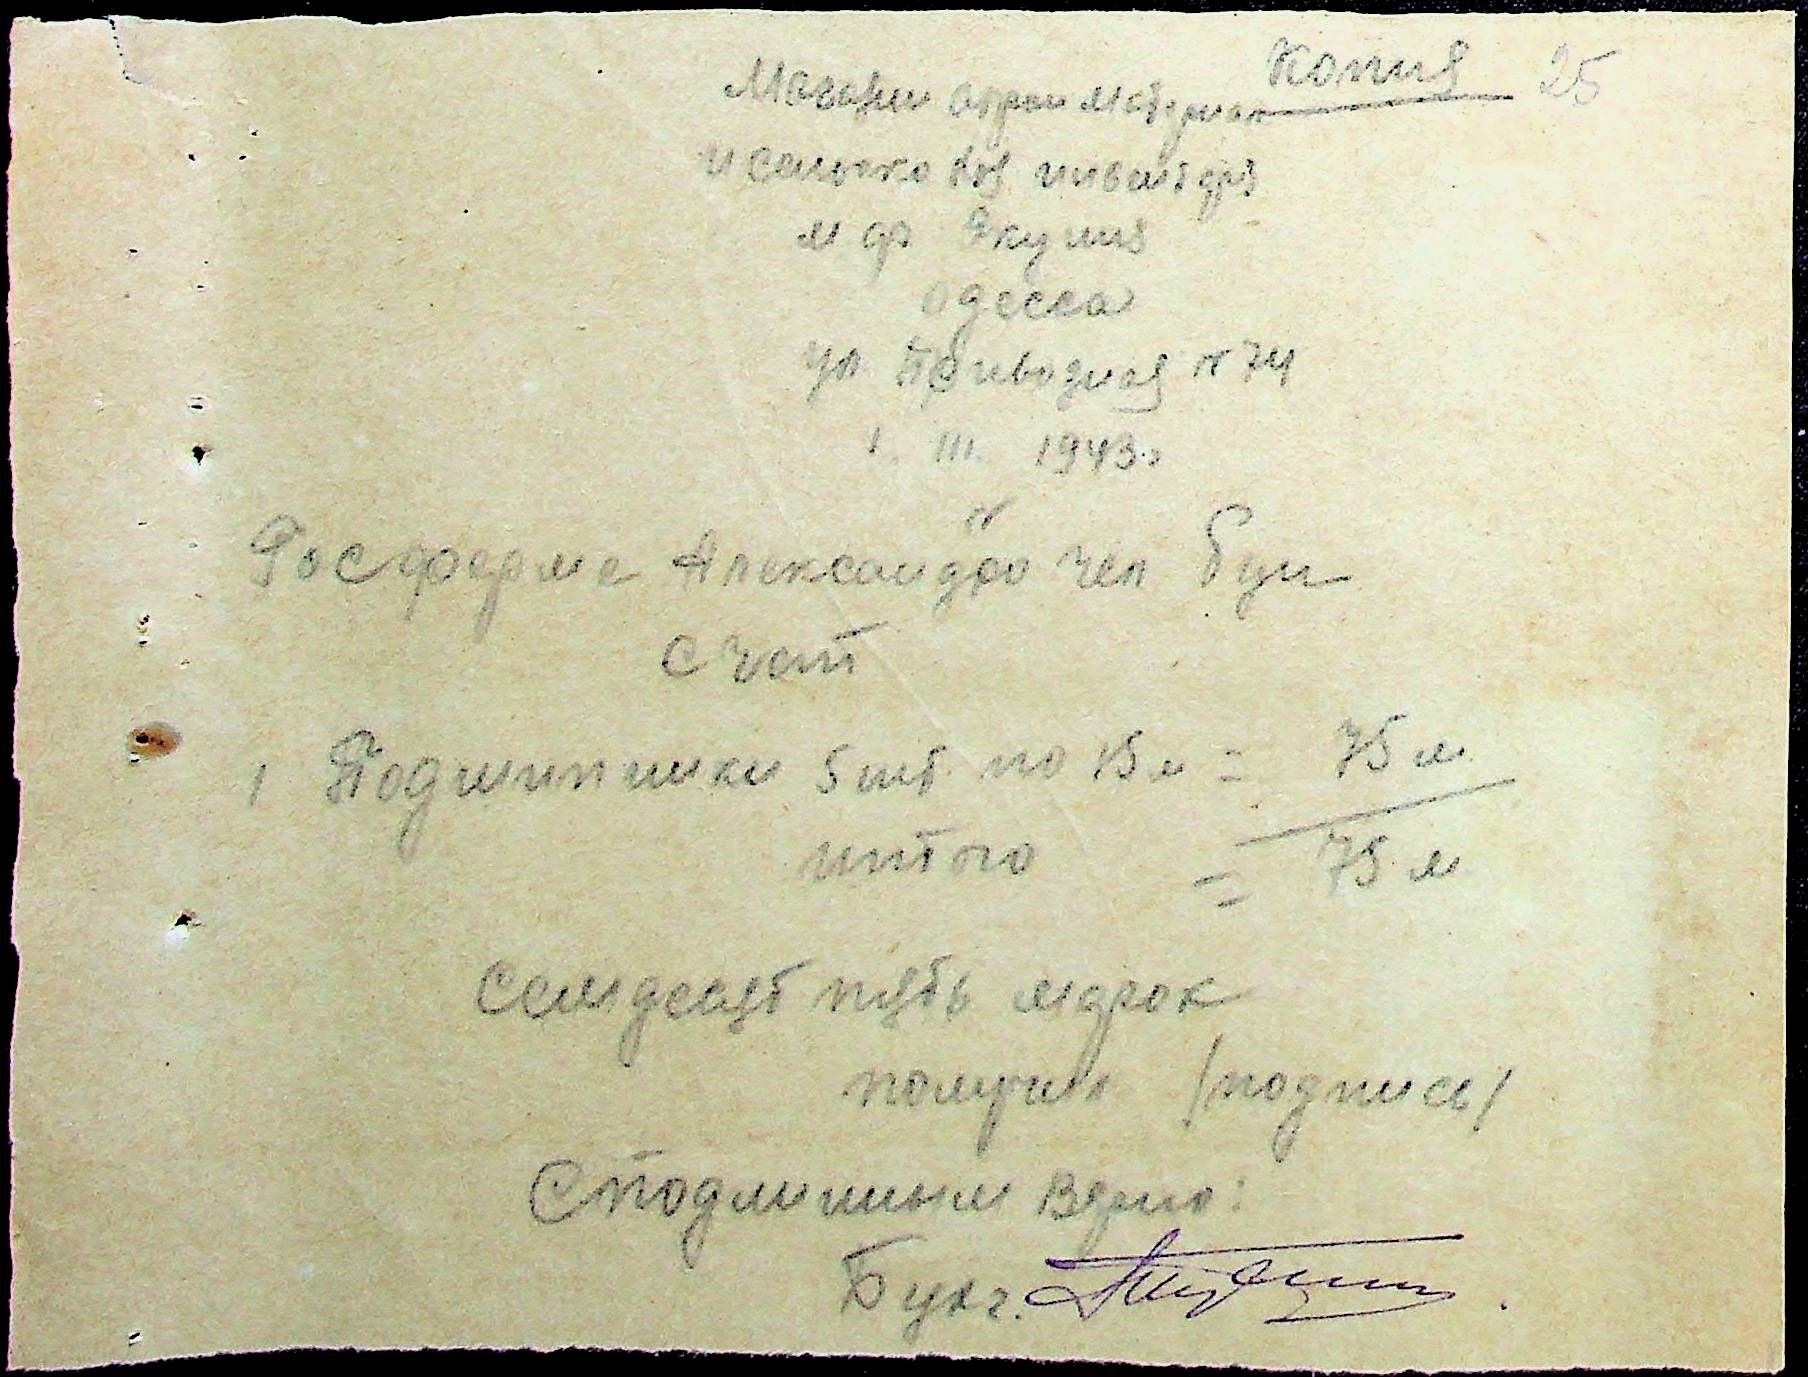 Копия 25
Магазин строи материал
и сельско хоз инвентаря
м ф Якумия
Одесса
ул Привозная № 74
1. III. 1943г
Госферме Александро чел буи
Счет
1 Подшипники 5 шт по 15 м = 75 м
итого = 75 м
Семдесят пять марок
получил /подпись/
С подлинным верно:
Бухг.